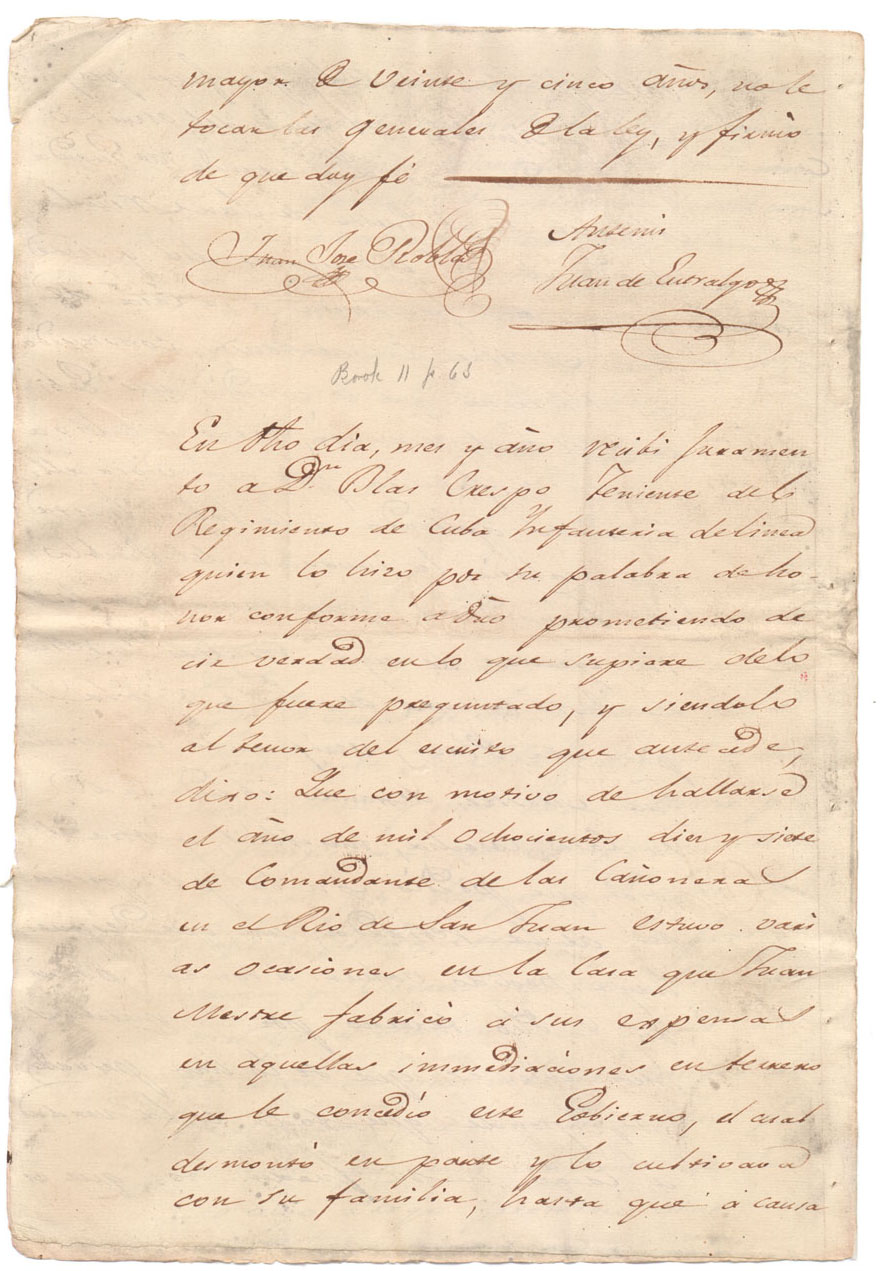 mayor de veinte y cinco años, no le
tocan las generales dela ley, y firmó
de que doy fé
Juan José Robla
Antemi
Juan de Entralgo
Book 11 p. 63
En dho dia, mes y año recibi juramen
to a Dn. Blas Crespo Teniente del
Regimiento de Cuba Infanteria de linea
quien lo hizo por su palabra de ho-
nor conforme a dro prometiendo de
cir verdad en lo que supiere delo
que fuere preguntado, y siendolo
al tenor del escrito que antecede,
dixo: Que con motivo de hallarse
el año de mil ochocientos diez y siete
de Comandante de las Cañoneras
en el Rio de San Juan estuvo vari
as ocasiones en la Casa que Juan
Mestre fabricó á sus expensas
en aquellas immediaciones en terreno
que le concedío este Gobierno, el cual
desmontó en parte y lo cultivava
con su familia, hasta que á causa